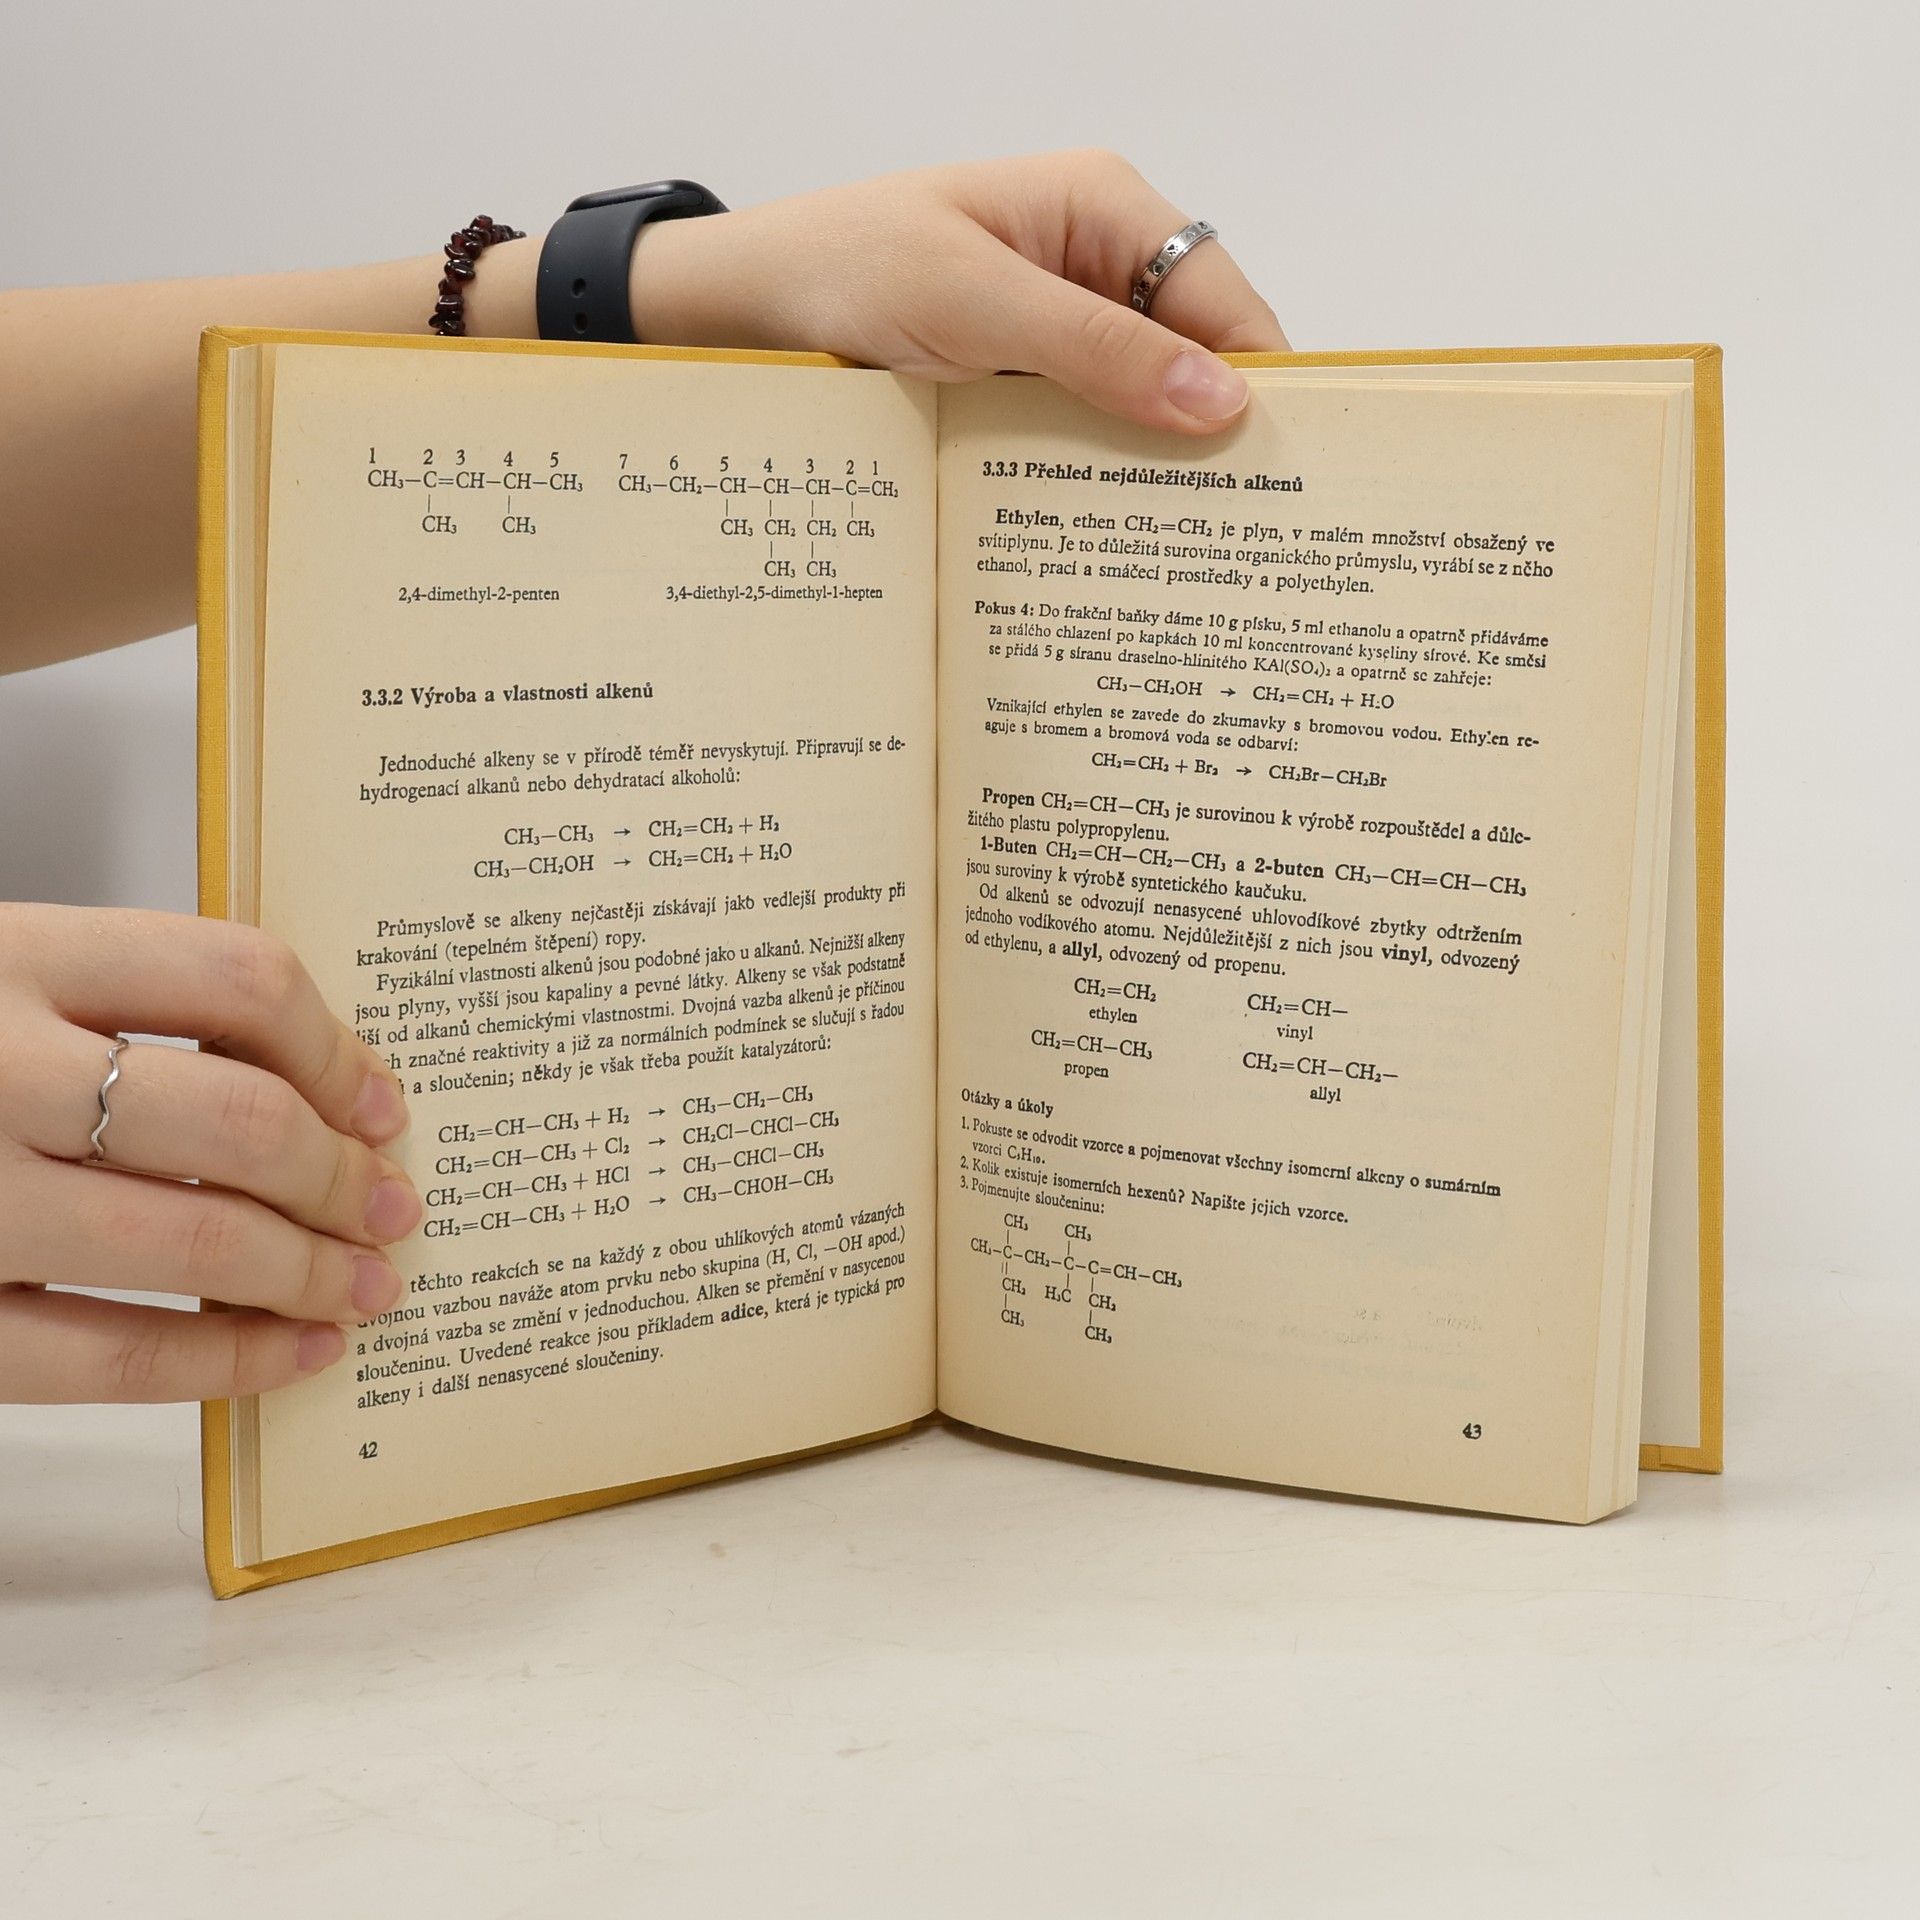 1 2 3 4 5
CH₃—C=CH—CH—CH₃
CH₃ CH₃
2,4-dimethyl-2-penten
7 6 5 4 3 2 1
CH₃—CH₂—CH—CH—CH—C=CH₂
CH₃ CH₂ CH₂ CH₃
CH₃ CH₃
3,4-diethyl-2,5-dimethyl-1-hepten
3.3.2 Výroba a vlastnosti alkenů
Jednoduché alkeny se v přírodě téměř nevyskytují. Připravují se de-
hydrogenací alkanů nebo dehydratací alkoholů:
CH₃—CH₃ → CH₂=CH₂ + H₂
CH₃—CH₂OH → CH₂=CH₂ + H₂O
Průmyslově se alkeny nejčastěji získávají jako vedlejší produkty při
krakování (tepelném štěpení) ropy.
Fyzikální vlastnosti alkenů jsou podobné jako u alkanů. Nejnižší alkeny
jsou plyny, vyšší jsou kapaliny a pevné látky. Alkeny se však podstatně
liší od alkanů chemickými vlastnostmi. Dvojná vazba alkenů je příčinou
značné reaktivity a již za normálních podmínek se slučují s řadou
a sloučenin; někdy je však třeba použít katalyzátorů:
CH₂=CH—CH₃ + H₂ → CH₃—CH₂—CH₃
CH₂=CH—CH₃ + Cl₂ → CH₂Cl—CHCl—CH₃
CH₂=CH—CH₃ + HCl → CH₃—CHCl—CH₃
CH₂=CH—CH₃ + H₂O → CH₃—CHOH—CH₃
těchto reakcích se na každý z obou uhlíkových atomů vázaných
dvojnou vazbou naváže atom prvku nebo skupina (H, Cl, —OH apod.)
a dvojná vazba se změní v jednoduchou. Alken se přemění v nasycenou
sloučeninu. Uvedené reakce jsou příkladem adice, která je typická pro
alkeny i další nenasycené sloučeniny.
42
3.3.3 Přehled nejdůležitějších alkenů
Ethylen, ethen CH₂=CH₂ je plyn, v malém množství obsažený ve
svítiplynu. Je to důležitá surovina organického průmyslu, vyrábí se z něho
ethanol, prací a smáčecí prostředky a polyethylen.
Pokus 4: Do frakční baňky dáme 10 g písku, 5 ml ethanolu a opatrně přidáváme
za stálého chlazení po kapkách 10 ml koncentrované kyseliny sírové. Ke směsi
se přidá 5 g síranu draselno-hlinitého KAl(SO₄)₂ a opatrně se zahřeje:
CH₃—CH₂OH → CH₂=CH₂ + H₂O
Vznikající ethylen se zavede do zkumavky s bromovou vodou. Ethylen re-
aguje s bromem a bromová voda se odbarví:
CH₂=CH₂ + Br₂ → CH₂Br—CH₂Br
Propen CH₂=CH—CH₃ je surovinou k výrobě rozpouštědel a důle-
žitého plastu polypropylenu.
1-Buten CH₂=CH—CH₂—CH₃ a 2-buten CH₃—CH=CH—CH₃
jsou suroviny k výrobě syntetického kaučuku.
Od alkenů se odvozují nenasycené uhlovodíkové zbytky odtržením
jednoho vodíkového atomu. Nejdůležitější z nich jsou vinyl, odvozený
od ethylenu, a allyl, odvozený od propenu.
CH₂=CH₂ CH₂=CH—
ethylen vinyl
CH₂=CH—CH₃ CH₂=CH—CH₂—
propen allyl
Otázky a úkoly
1. Pokuste se odvodit vzorce a pojmenovat všechny isomerní alkeny o sumárním
vzorci C₅H₁₀.
2. Kolik existuje isomerních hexenů? Napište jejich vzorce.
3. Pojmenujte sloučeninu:
CH₃ CH₃
CH₃—C—CH₂—C—C=CH—CH₃
CH₂ H₃C CH₂
CH₃ CH₃
43